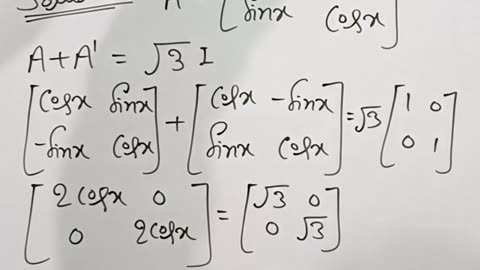 A [sinx cosx]
A+A' = √3 I
[cosx sinx -sinx cosx] + [cosx -sinx sinx cosx] = √3 [1 0 0 1]
[2cosx 0 0 2cosx] = [√3 0 0 √3]